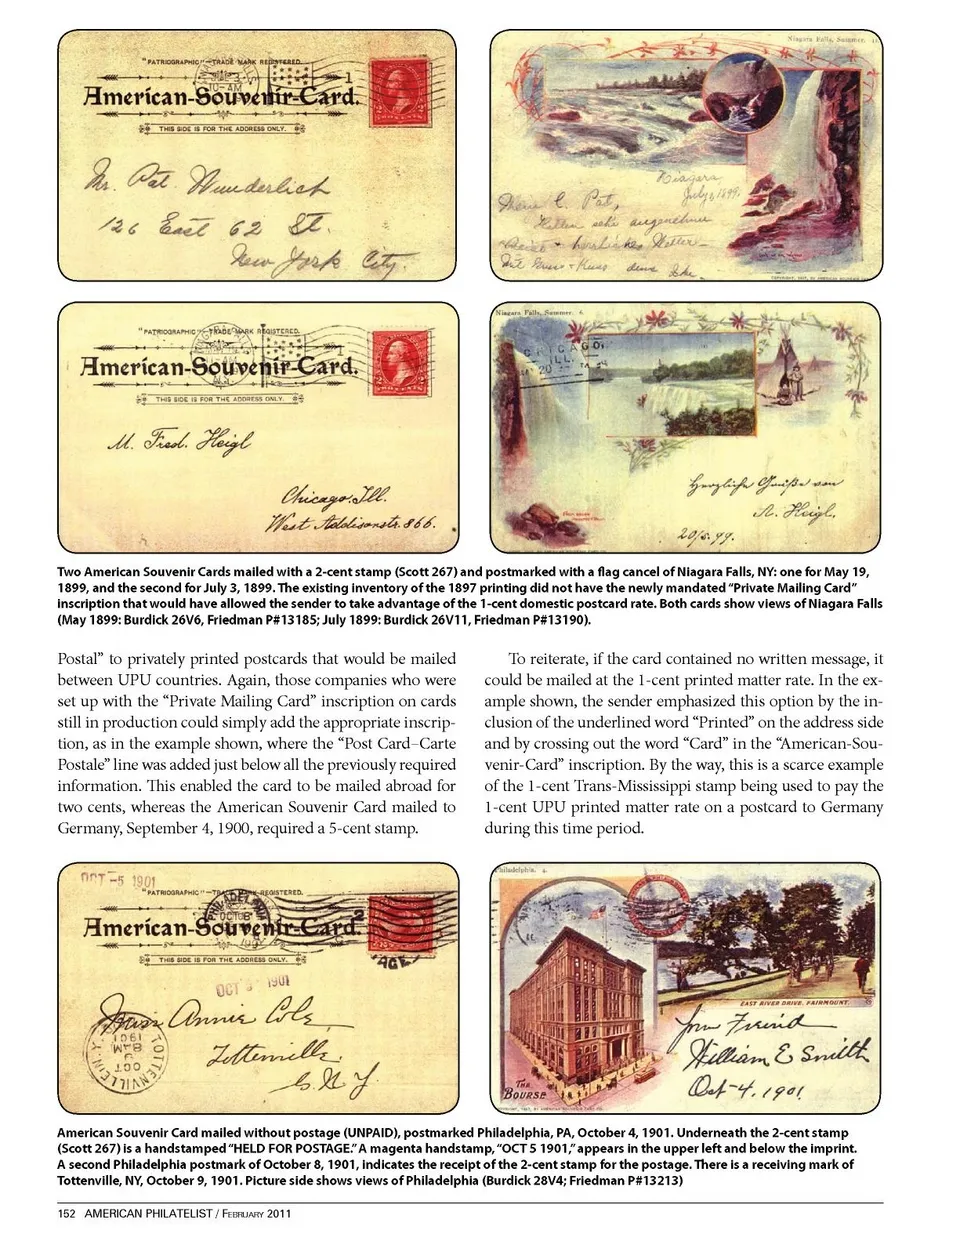 "PATRIOGRAPHIC"—TRADE MARK REGISTERED.
American-Souvenir-Card.
THIS SIDE IS FOR THE ADDRESS ONLY.
Mr. Pat. Wunderlich
126 East 62 St.
New York City.
Niagara Falls, Summer. 11
Niagara
July 3, 1899.
"PATRIOGRAPHIC"—TRADE MARK REGISTERED.
American-Souvenir-Card.
THIS SIDE IS FOR THE ADDRESS ONLY.
M. Fred. Heigl
Chicago, Ill.
West Addisonstr. 866.
Niagara Falls, Summer. 6.
CHICAGO,
ILL.
Herzliche Grüße von
A. Heigl,
20/5.99.
Two American Souvenir Cards mailed with a 2-cent stamp (Scott 267) and postmarked with a flag cancel of Niagara Falls, NY: one for May 19,
1899, and the second for July 3, 1899. The existing inventory of the 1897 printing did not have the newly mandated “Private Mailing Card”
inscription that would have allowed the sender to take advantage of the 1-cent domestic postcard rate. Both cards show views of Niagara Falls
(May 1899: Burdick 26V6, Friedman P#13185; July 1899: Burdick 26V11, Friedman P#13190).
Postal” to privately printed postcards that would be mailed
between UPU countries. Again, those companies who were
set up with the “Private Mailing Card” inscription on cards
still in production could simply add the appropriate inscrip-
tion, as in the example shown, where the “Post Card–Carte
Postale” line was added just below all the previously required
information. This enabled the card to be mailed abroad for
two cents, whereas the American Souvenir Card mailed to
Germany, September 4, 1900, required a 5-cent stamp.
To reiterate, if the card contained no written message, it
could be mailed at the 1-cent printed matter rate. In the ex-
ample shown, the sender emphasized this option by the in-
clusion of the underlined word “Printed” on the address side
and by crossing out the word “Card” in the “American-Sou-
venir-Card” inscription. By the way, this is a scarce example
of the 1-cent Trans-Mississippi stamp being used to pay the
1-cent UPU printed matter rate on a postcard to Germany
during this time period.
OCT -5 1901
"PATRIOGRAPHIC"—TRADE MARK REGISTERED.
American-Souvenir-Card.
THIS SIDE IS FOR THE ADDRESS ONLY.
OCT 5 1901
Miss Annie Cole,
Tottenville.
S. N. Y.
TOTTENVILLE, N.Y.
OCT
9
8AM
1901
Philadelphia. 4.
EAST RIVER DRIVE, FAIRMOUNT.
THE
BOURSE
Your Friend
William E Smith
Oct-4, 1901.
American Souvenir Card mailed without postage (UNPAID), postmarked Philadelphia, PA, October 4, 1901. Underneath the 2-cent stamp
(Scott 267) is a handstamped “HELD FOR POSTAGE.” A magenta handstamp, “OCT 5 1901,” appears in the upper left and below the imprint.
A second Philadelphia postmark of October 8, 1901, indicates the receipt of the 2-cent stamp for the postage. There is a receiving mark of
Tottenville, NY, October 9, 1901. Picture side shows views of Philadelphia (Burdick 28V4; Friedman P#13213)
152 AMERICAN PHILATELIST / FEBRUARY 2011